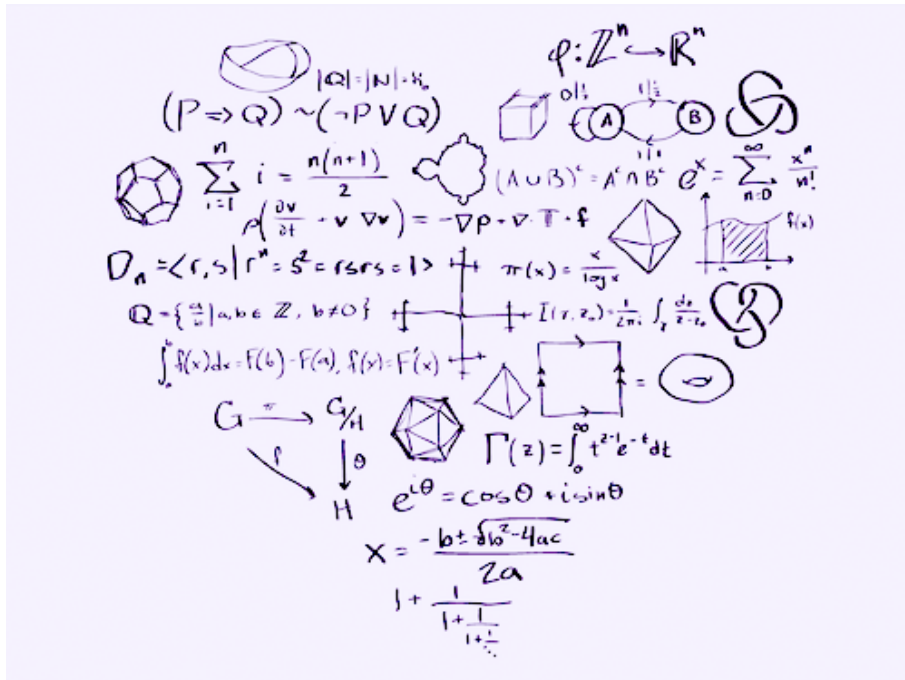 φ: ℤⁿ ↪ ℝⁿ
|Q| = |N| = ℵ₀
(P ⇒ Q) ~ (¬P ∨ Q)
0|½ 1|½
A B
1|1
∑_{i=1}^{n} i = n(n+1)/2
(A ∪ B)ᶜ = Aᶜ ∩ Bᶜ
eˣ = ∑_{n=0}^{∞} xⁿ/n!
ρ(∂v/∂t + v·∇v) = -∇p + ∇·T + f
f(x)
a b
Dₙ = <r, s | rⁿ = s² = rsrs = 1>
π(x) = x/log x
ℚ = {a/b | a, b ∈ ℤ, b ≠ 0}
I(γ, z₀) = 1/2πi ∫_γ dz/z-z₀
∫_a^b f(x)dx = F(b) - F(a), f(x) = F'(x)
=
G π G/H
θ
H
Γ(z) = ∫_0^∞ t^{z-1} e^{-t} dt
e^{iθ} = cosθ + i sinθ
x = -b ± √(b²-4ac) / 2a
1 + 1/(1 + 1/(1 + 1/⋱))